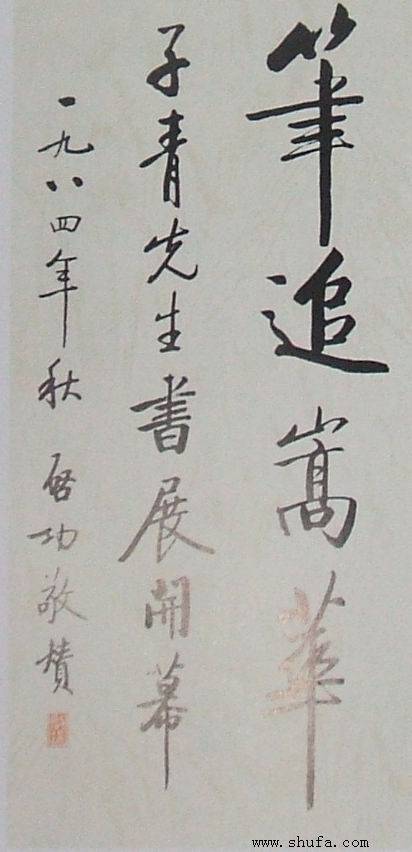 筆追嵩華
子青先生書展開幕
一九八四年秋 啓功敬贊
www.shufa.com